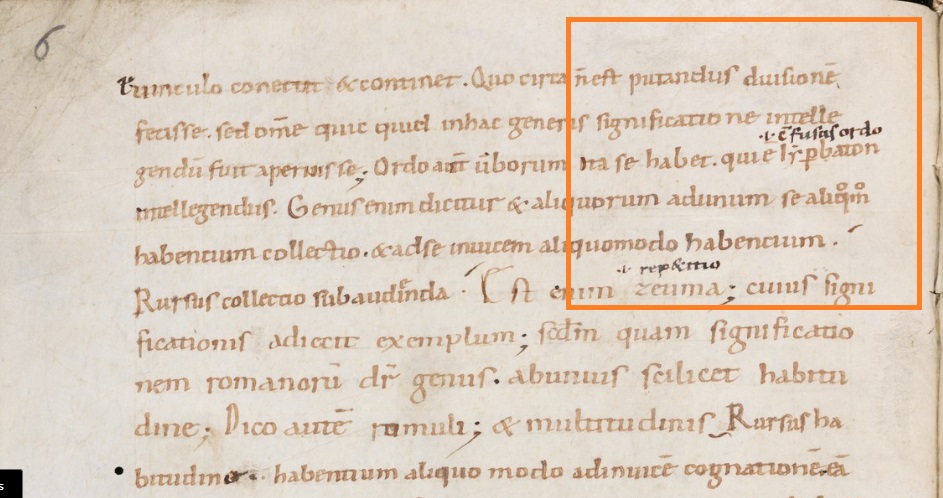 6
runculo conectit & continet. Quo circa n̄ est putandus diuisionē
fecisse. sed om̄e quic quid inhac generis significatione intelle
·i· c̄fusus ordo
gendū fuit aperuisse; Ordo aut̄ ūborum ita se habet. qui ē
intellegendus. Genus enim dicitur & aliquorum adunum se aliq̊m̊
habentium collectio. & adse inuicem aliquomodo habentium.
·i· rep&itio
Rursus collectio subaudienda. Est enim zeuma; cuius signi
ficationis adiecit exemplum; scd̄m quam significatio
nem romanorū dr̄ genus. abunius scilicet habitu
dine; Dico autē romuli; & multitudinis Rursus ha
bitudine habentium aliquo modo adinuicē cognationē. eā
s